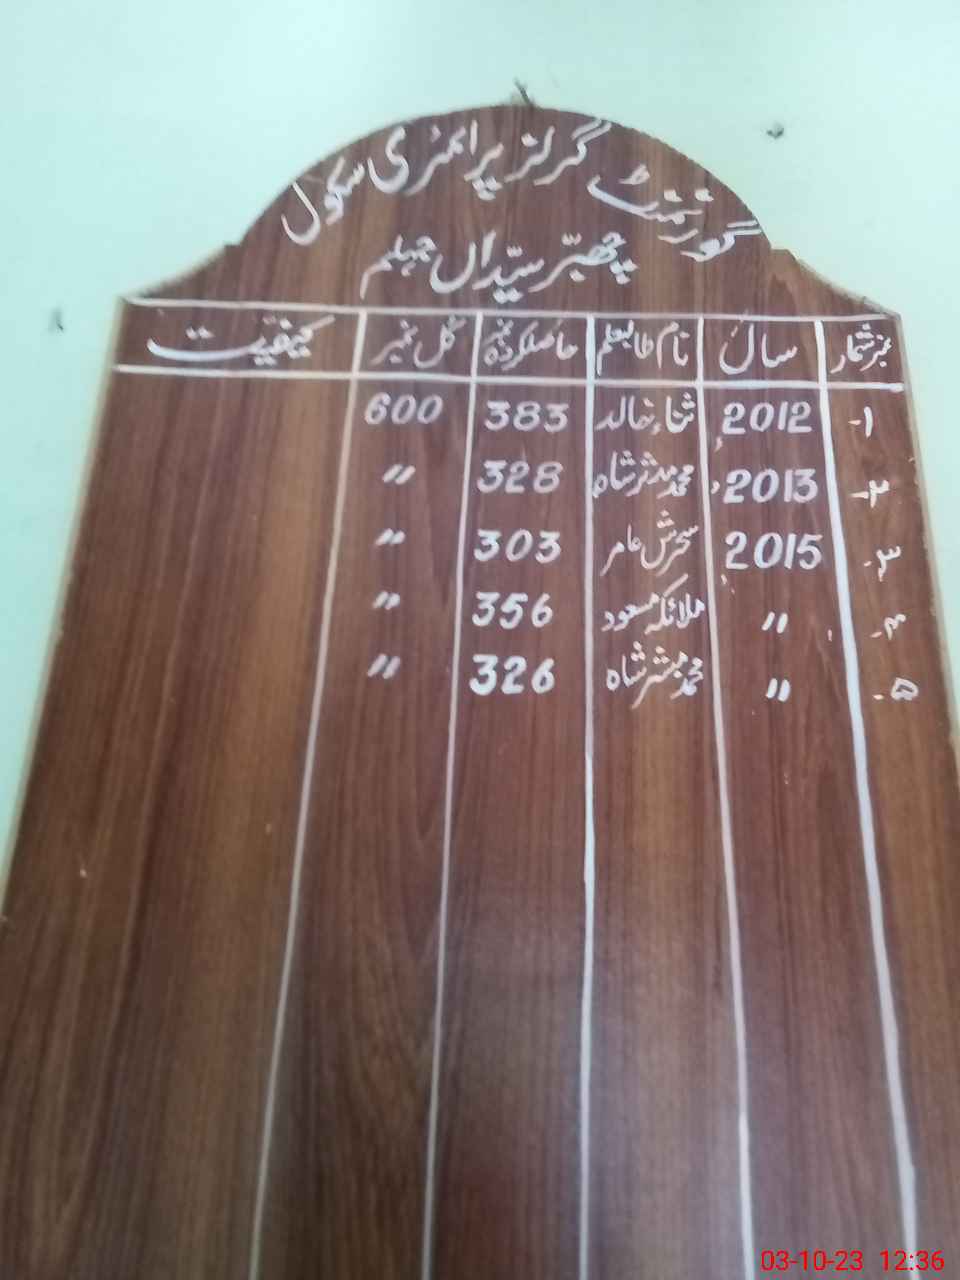 گورنمنٹ گرلز پرائمری سکول
چھبر سیّداں جہلم
نمبر شمار سال نام طالبعلم حاصل کردہ نمبر کُل نمبر کیفیت
۱- 2012 ثناء خالد 383 600
۲- 2013 محمد مدثر شاہ 328 〃
۳- 2015 سحرش عامر 303 〃
۴- 〃 ملائکہ مسعود 356 〃
۵- 〃 محمد مبشر شاہ 326 〃
03-10-23 12:36